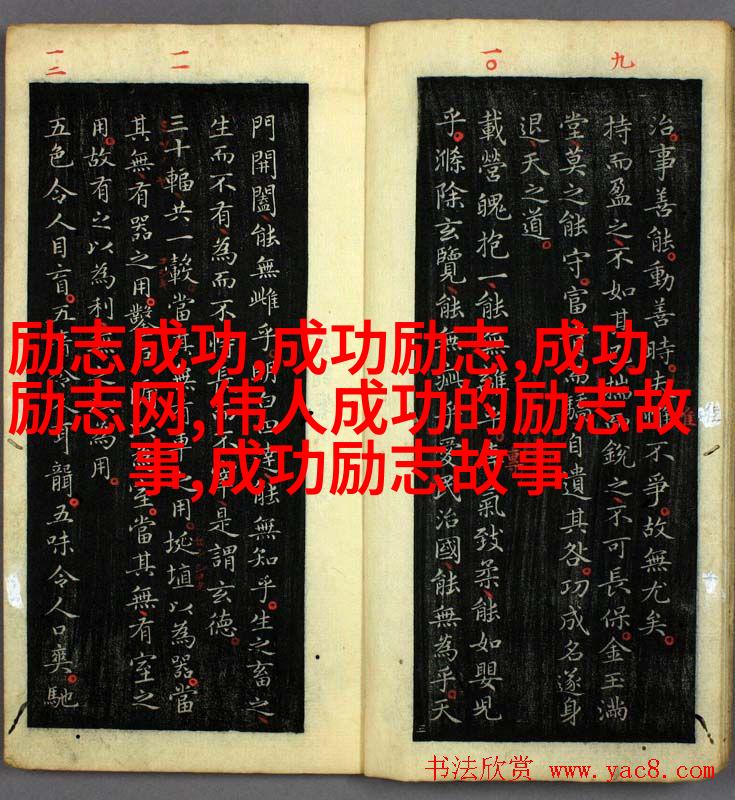 九
一〇
一一
一二
治。事善能。動善時。不爭。故無尤矣。
持而盈之、不如其揣銳之、不可長保。金玉滿
堂、莫之能守。富而驕、自遺其咎。功成名遂身
退、天之道。
載營魄抱一、能無離乎。氣致柔、能如嬰兒
乎。滌除玄覽、能無乎。愛民治國、能無為乎。天
門開闔、能無雌乎。明白四達、能無知乎。生之畜之、
生而不有、為而不是謂玄德。
三十輻、共一轂、當其無、有車之用。埏埴以為器、當
其無、有器之用。鑿室。當其無、有室之
用。故有之以為利、無之以為用。
五色令人目盲。五令人耳聾。五味令人口爽。馳
励志成功,成功励志,成功
励志网,伟人成功的励志故
事,成功励志故事
书法欣赏 www.yac8.com